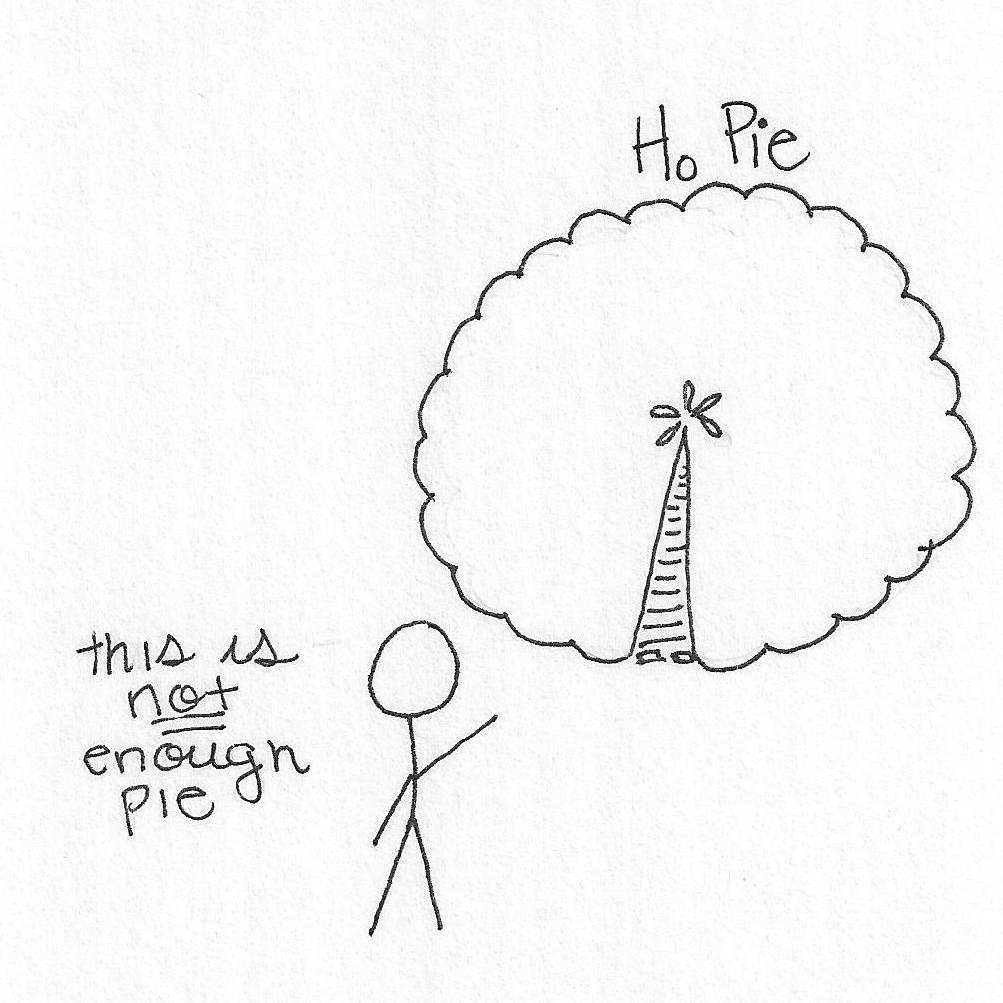 Ho Pie
this is
not
enough
pie